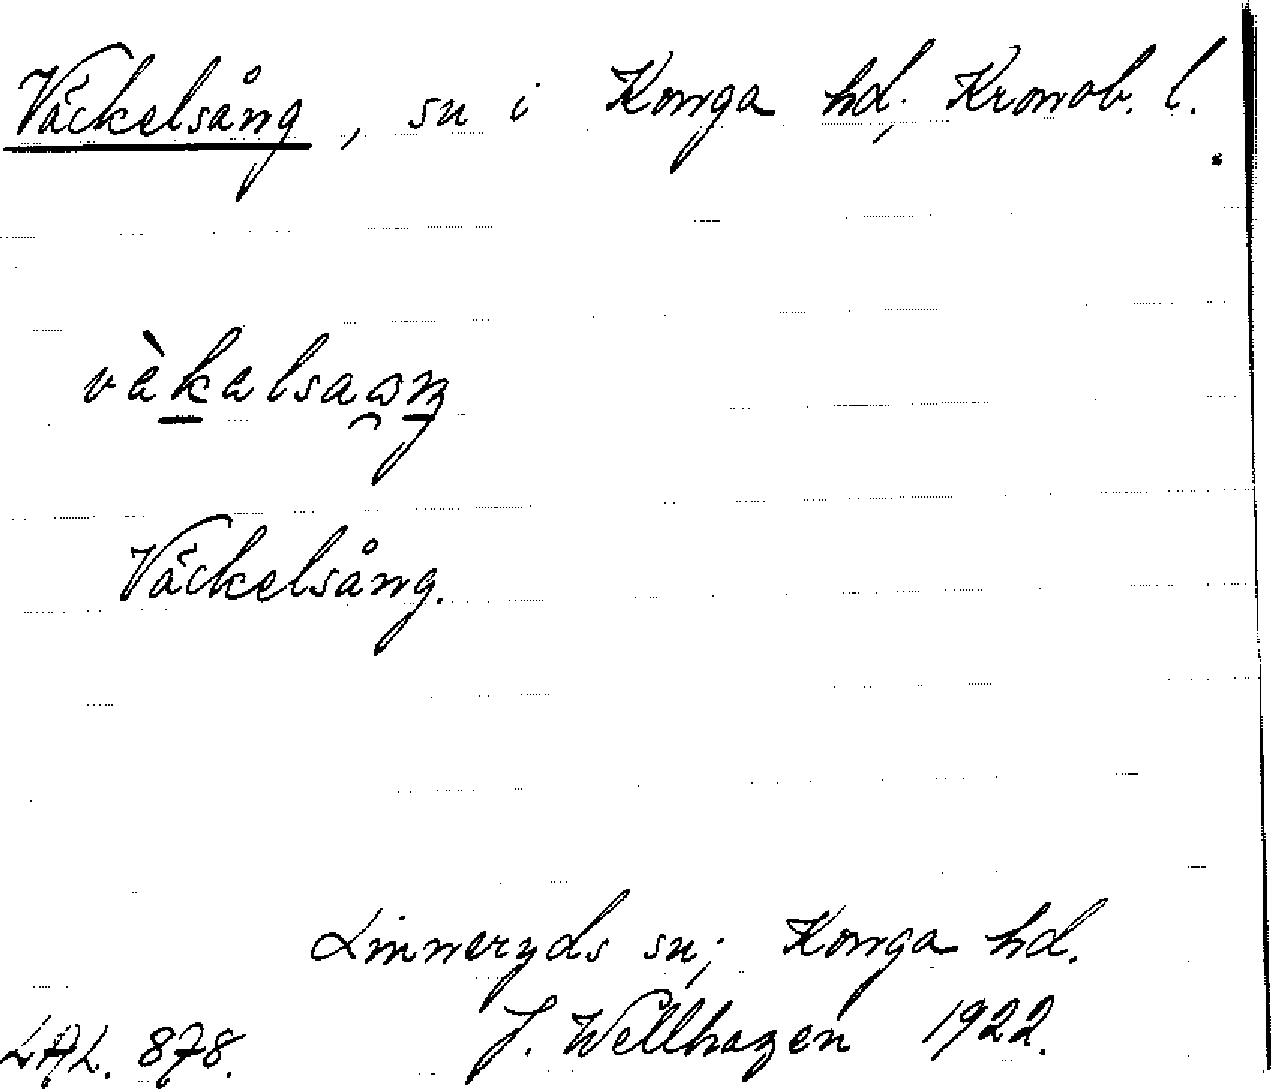 Väckelsång, sn i Konga hd, Kronob. l.
vàkalsaaŋ
Väckelsång.
Linneryds sn; Konga hd.
LAL. 878. J. Wellhagen 1922.